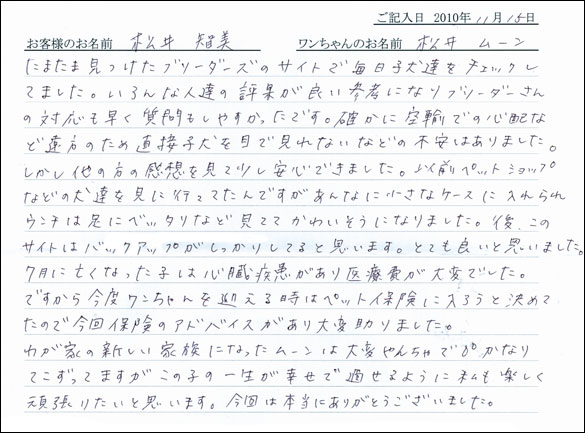 ご記入日 2010年11月15日
お客様のお名前 松井 智美 ワンちゃんのお名前 松井 ムーン
たまたま見つけたブリーダーズのサイトで毎日子犬達をチェックし
てました。いろんな人達の評果が良い参考になりブリーダーさん
の対応も早く質問もしやすかったです。確かに空輸での心配な
ど遠方のため直接子犬を目で見れないなどの不安はありました。
しかし他の方の感想を見て少し安心できました。以前ペットショップ
などの犬達を見に行ってたんですがあんなに小さなケースに入れられ
ウンチは足にベッタリなど見ててかわいそうになりました。後、この
サイトはバックアップがしっかりしてると思います。とても良いと思いました。
7月に亡くなった子は心臓疾患があり医療費が大変でした。
ですから今度ワンちゃんを迎える時はペット保険に入ろうと決めて
たので今回保険のアドバイスがあり大変助りました。
わが家の新しい家族になったムーンは大変やんちゃでかなり
てこずってますがこの子の一生が幸せで過せるように私も楽しく
頑張りたいと思います。今回は本当にありがとうございました。